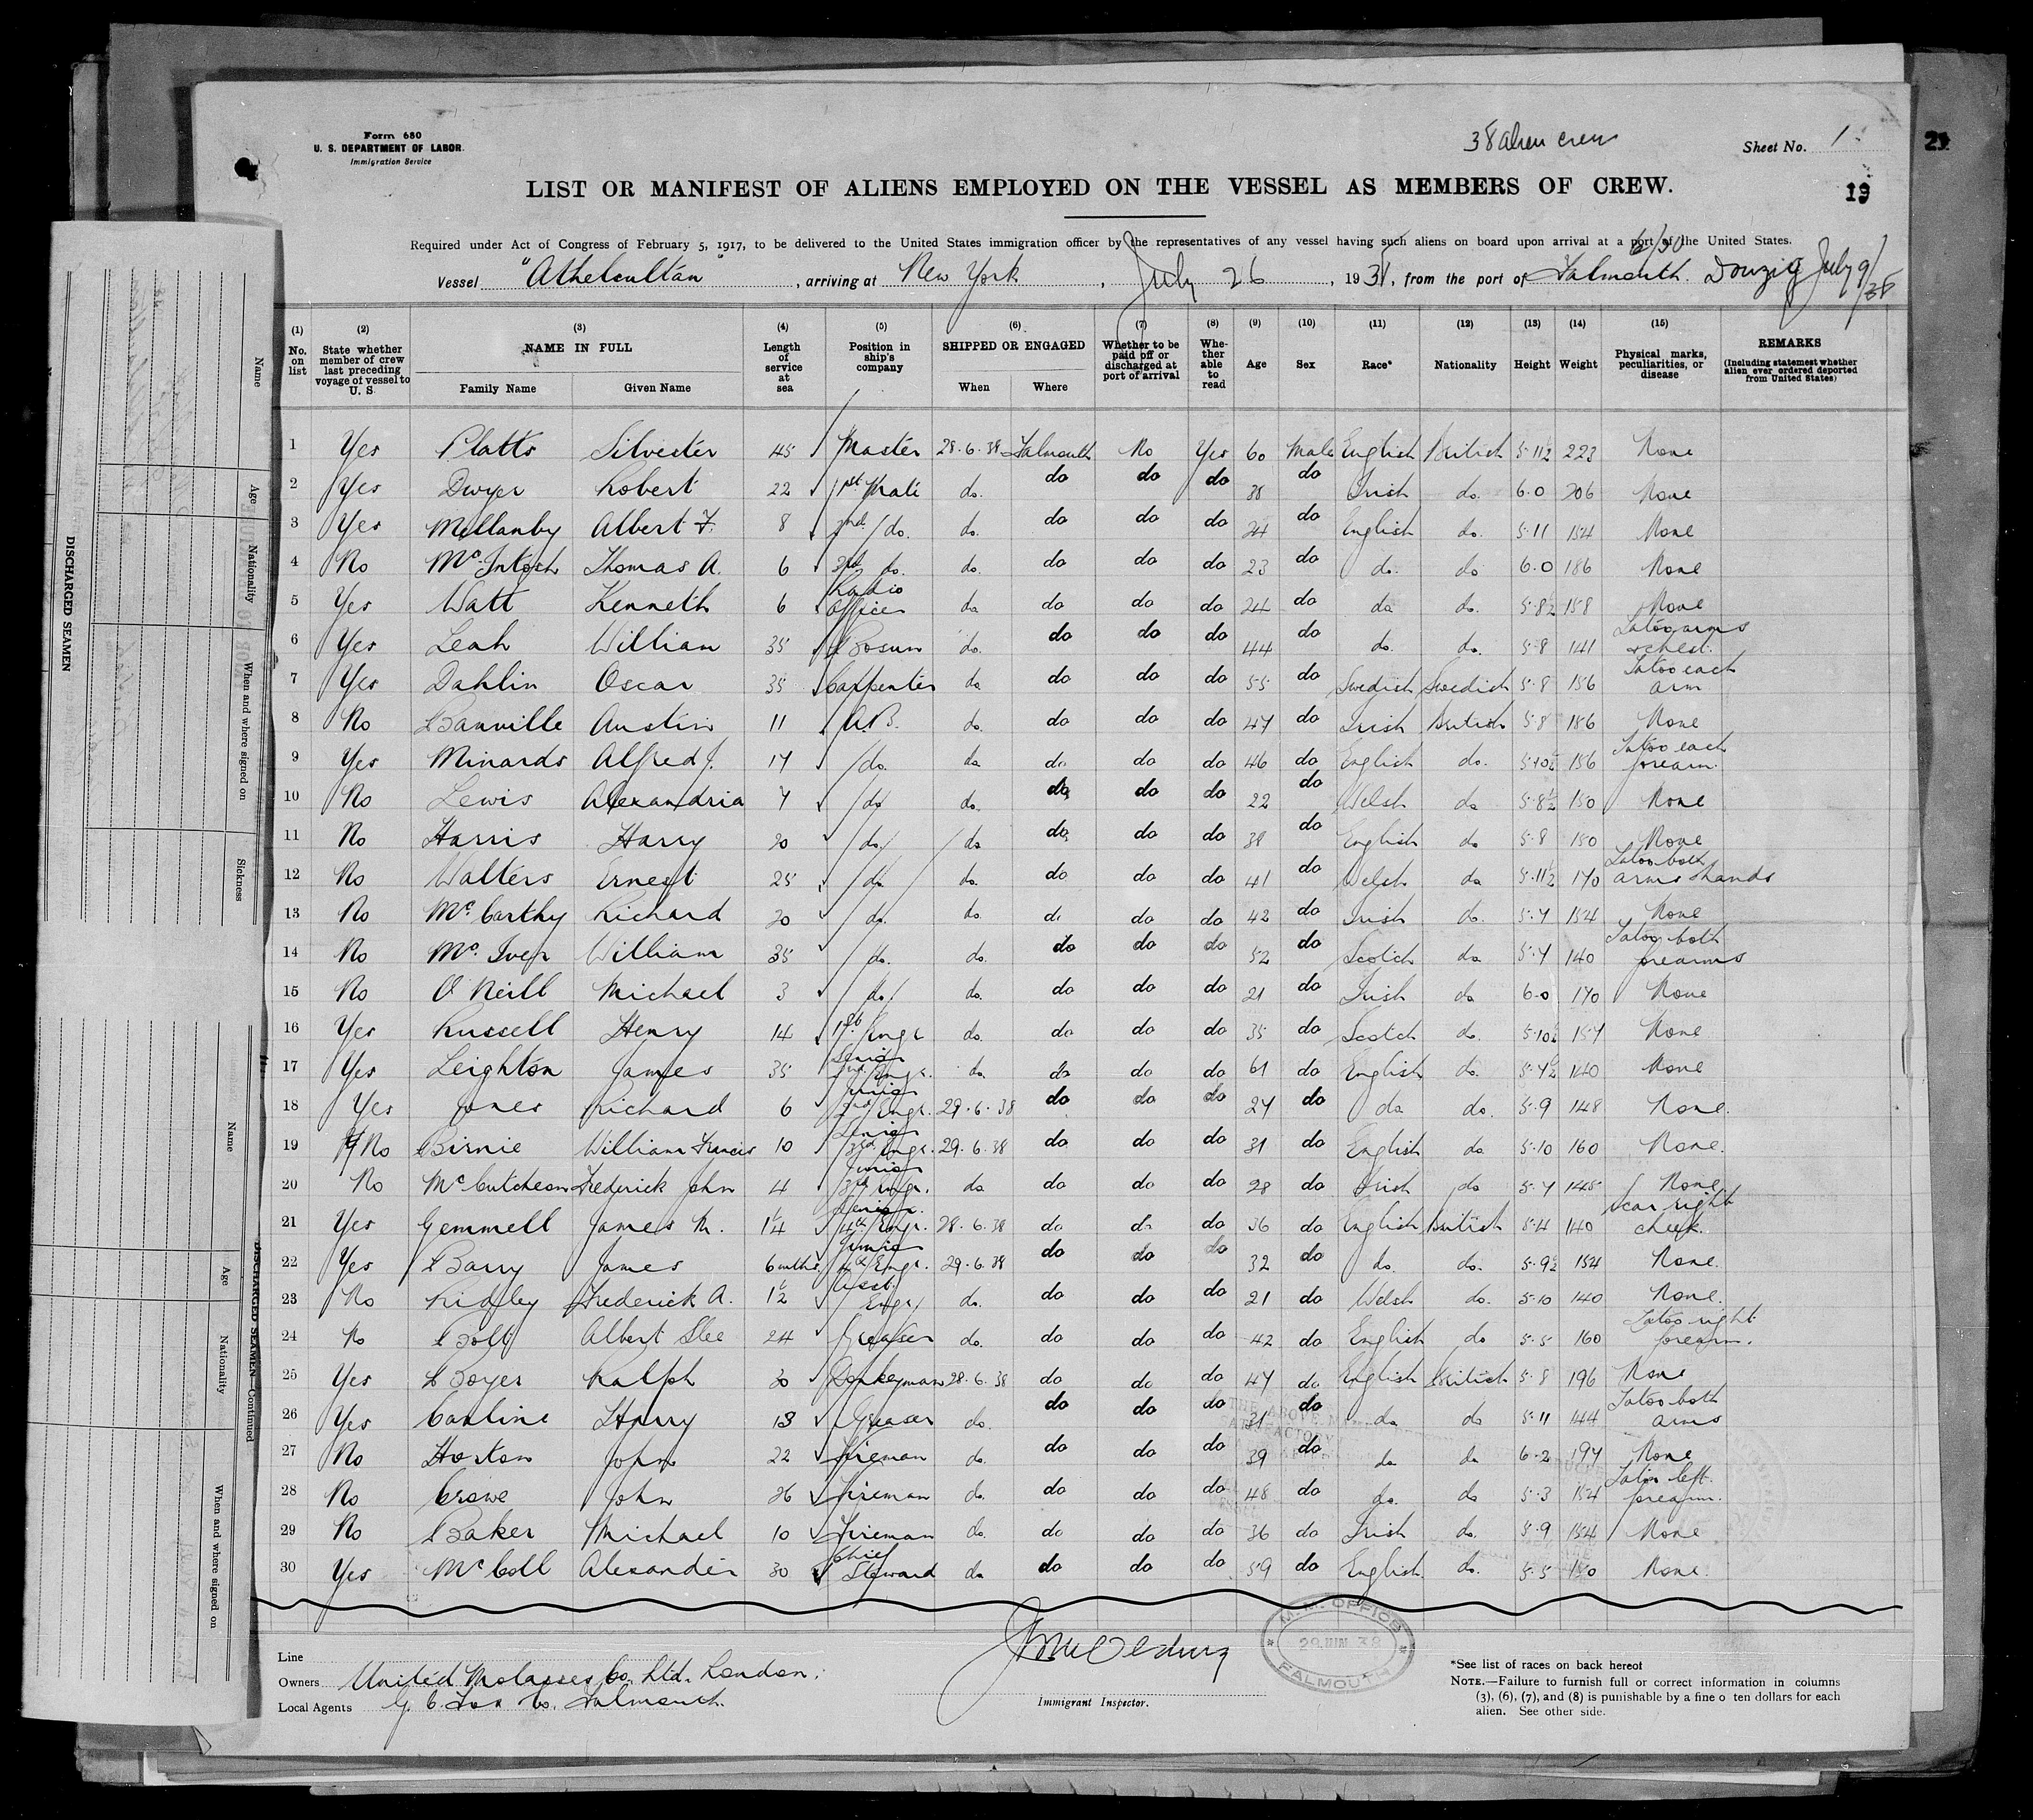 Form 680
U. S. DEPARTMENT OF LABOR.
Immigration Service
38 alien crew
Sheet No. 1.
19
LIST OR MANIFEST OF ALIENS EMPLOYED ON THE VESSEL AS MEMBERS OF CREW.
Required under Act of Congress of February 5, 1917, to be delivered to the United States immigration officer by the representatives of any vessel having such aliens on board upon arrival at a port of the United States.
6/30
Vessel "Athelsultan", arriving at New York, July 26, 1938, from the port of Falmouth. Danzig July 9/38
(1) (2) (3) (4) (5) (6) (7) (8) (9) (10) (11) (12) (13) (14) (15)
No. on list | State whether member of crew last preceding voyage of vessel to U. S. | NAME IN FULL Family Name Given Name | Length of service at sea | Position in ship's company | SHIPPED OR ENGAGED When Where | Whether to be paid off or discharged at port of arrival | Whether able to read | Age | Sex | Race* | Nationality | Height | Weight | Physical marks, peculiarities, or disease | REMARKS (Including statement whether alien ever ordered deported from United States)
1 Yes Platts Silvester 45 Master 28.6.38 Falmouth No Yes 60 Male English British 5·11½ 223 None
2 Yes Dwyer Robert 22 1st Mate do. do do do 38 do Irish do. 6·0 206 None
3 Yes Mellanby Albert F. 8 2nd do. do. do do do 24 do English do. 5·11 154 None
4 No McIntosh Thomas A. 6 3rd do. do. do do do 23 do do. do 6·0 186 None
5 Yes Watt Kenneth 6 Radio Officer do do do do 24 do do do. 5·8½ 158 None
6 Yes Leah William 35 Bosun do. do do do 44 do do. do. 5·8 141 Tatoo arms & chest.
7 Yes Dahlin Oscar 35 Carpenter do do do do 55 do Swedish Swedish 5·8 156 Tatoo each arm
8 No Banville Austin 11 A.B. do. do do do 47 do Irish British 5·8 186 None
9 Yes Minards Alfred J. 17 do. do do do do 46 do English do. 5·10½ 156 Tatoo each forearm.
10 No Lewis Alexandria 7 do do. do do do 22 do Welsh do 5·8½ 150 None
11 No Harris Harry 20 do do do do do 38 do English do 5·8 150 None
12 No Walters Ernest 25 do do. do do do 41 do Welsh do 5·11½ 170 Tatoo both arms & hands
13 No McCarthy Richard 20 do. do. do do do 42 do Irish do. 5·7 154 None
14 No McIver William 35 do. do. do do do 52 do Scotch do 5·7 140 Tatoo both forearms
15 No O'Neill Michael 3 do. do. do do do 21 do Irish do 6·0 170 None
16 Yes Russell Henry 14 1st Engr do. do do do 35 do Scotch do. 5·10½ 157 None
17 Yes Leighton James 35 Senior 2nd Engr. do. do do do 61 do English do. 5·7½ 140 None
18 Yes Jones Richard 6 Junior 2nd Engr. 29.6.38 do do do 27 do do do. 5·9 148 None.
19 No Birnie William Francis 10 Senior 3rd Engr. 29.6.38 do do do 31 do English do 5·10 160 None.
20 No McCutcheon Frederick John 4 Junior 3rd Engr. do do do do 28 do Irish do 5·7 145 None.
21 Yes Gemmell James M. 1¼ Senior 4th Engr. 28.6.38 do do do 36 do English British 5·4 140 Scar right cheek.
22 Yes Barry James 6 mths Junior 4th Engr. 29.6.38 do do do 32 do do. do. 5·9½ 154 None.
23 No Ridley Frederick A. 1½ Asst. Engr do. do do do 21 do Welsh do. 5·10 140 None.
24 No Bolt Albert Slee 24 Greaser do. do do do 42 do English do 5·5 160 Tatoo right forearm.
25 Yes Boyer Ralph 30 Donkeyman 28.6.38 do do do 47 do English British 5·8 196 None
26 Yes Carline Harry 13 Greaser do. do do do 31 do do do 5·11 144 Tatoo both arms
27 No Horton John 22 Fireman do. do do do 39 do do do 6·2 197 None
28 No Crowe John 26 Fireman do. do do do 48 do do. do 5·3 154 Tatoo left forearm.
29 No Baker Michael 10 Fireman do. do do do 36 do Irish do. 5·9 154 None
30 Yes McColl Alexander 30 Chief Steward do do do do 59 do English do. 5·5 None.
Line
Owners United Molasses Co. Ltd. London.
Local Agents G. C. Fox Co. Falmouth
Immigrant Inspector.
M. M. OFFICE
29 JUN 38
FALMOUTH
*See list of races on back hereof
NOTE.—Failure to furnish full or correct information in columns
(3), (6), (7), and (8) is punishable by a fine o ten dollars for each
alien. See other side.
DISCHARGED SEAMEN
Name
Age
Nationality
When and where signed on
Sickness
DISCHARGED SEAMEN—Continued
Name
Age
Nationality
When and where signed on